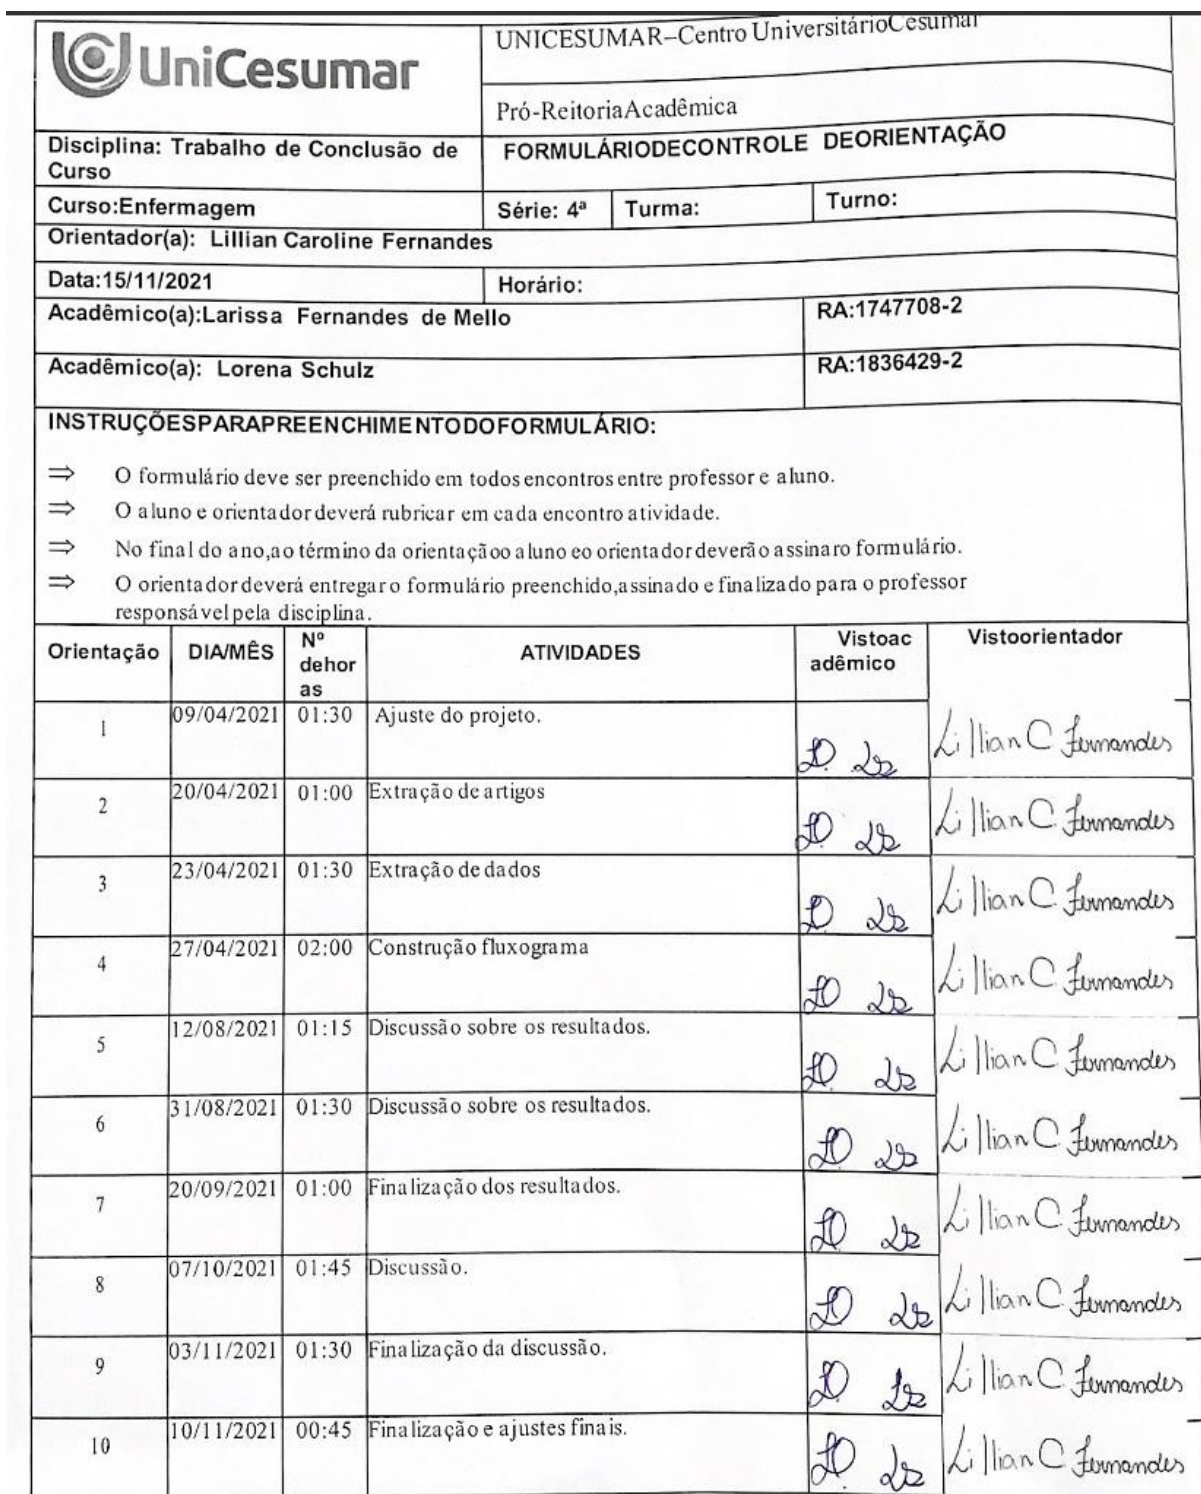 UniCesumar
UNICESUMAR–Centro UniversitárioCesumar
Pró-ReitoriaAcadêmica
Disciplina: Trabalho de Conclusão de
Curso
FORMULÁRIODECONTROLE DEORIENTAÇÃO
Curso:Enfermagem Série: 4ª Turma: Turno:
Orientador(a): Lillian Caroline Fernandes
Data:15/11/2021 Horário:
Acadêmico(a):Larissa Fernandes de Mello RA:1747708-2
Acadêmico(a): Lorena Schulz RA:1836429-2
INSTRUÇÕESPARAPREENCHIMENTODOFORMULÁRIO:
⇒ O formulário deve ser preenchido em todos encontros entre professor e aluno.
⇒ O aluno e orientador deverá rubricar em cada encontro atividade.
⇒ No final do ano,ao término da orientaçãoo aluno eo orientador deverão assinaro formulário.
⇒ O orientador deverá entregaro formulário preenchido,assinado e finalizado para o professor
responsável pela disciplina.
Orientação DIA/MÊS Nº dehor as ATIVIDADES Vistoac adêmico Vistoorientador
1 09/04/2021 01:30 Ajuste do projeto. Lillian C. Fernandes
2 20/04/2021 01:00 Extração de artigos Lillian C. Fernandes
3 23/04/2021 01:30 Extração de dados Lillian C. Fernandes
4 27/04/2021 02:00 Construção fluxograma Lillian C. Fernandes
5 12/08/2021 01:15 Discussão sobre os resultados. Lillian C. Fernandes
6 31/08/2021 01:30 Discussão sobre os resultados. Lillian C. Fernandes
7 20/09/2021 01:00 Finalização dos resultados. Lillian C. Fernandes
8 07/10/2021 01:45 Discussão. Lillian C. Fernandes
9 03/11/2021 01:30 Finalização da discussão. Lillian C. Fernandes
10 10/11/2021 00:45 Finalização e ajustes finais. Lillian C. Fernandes